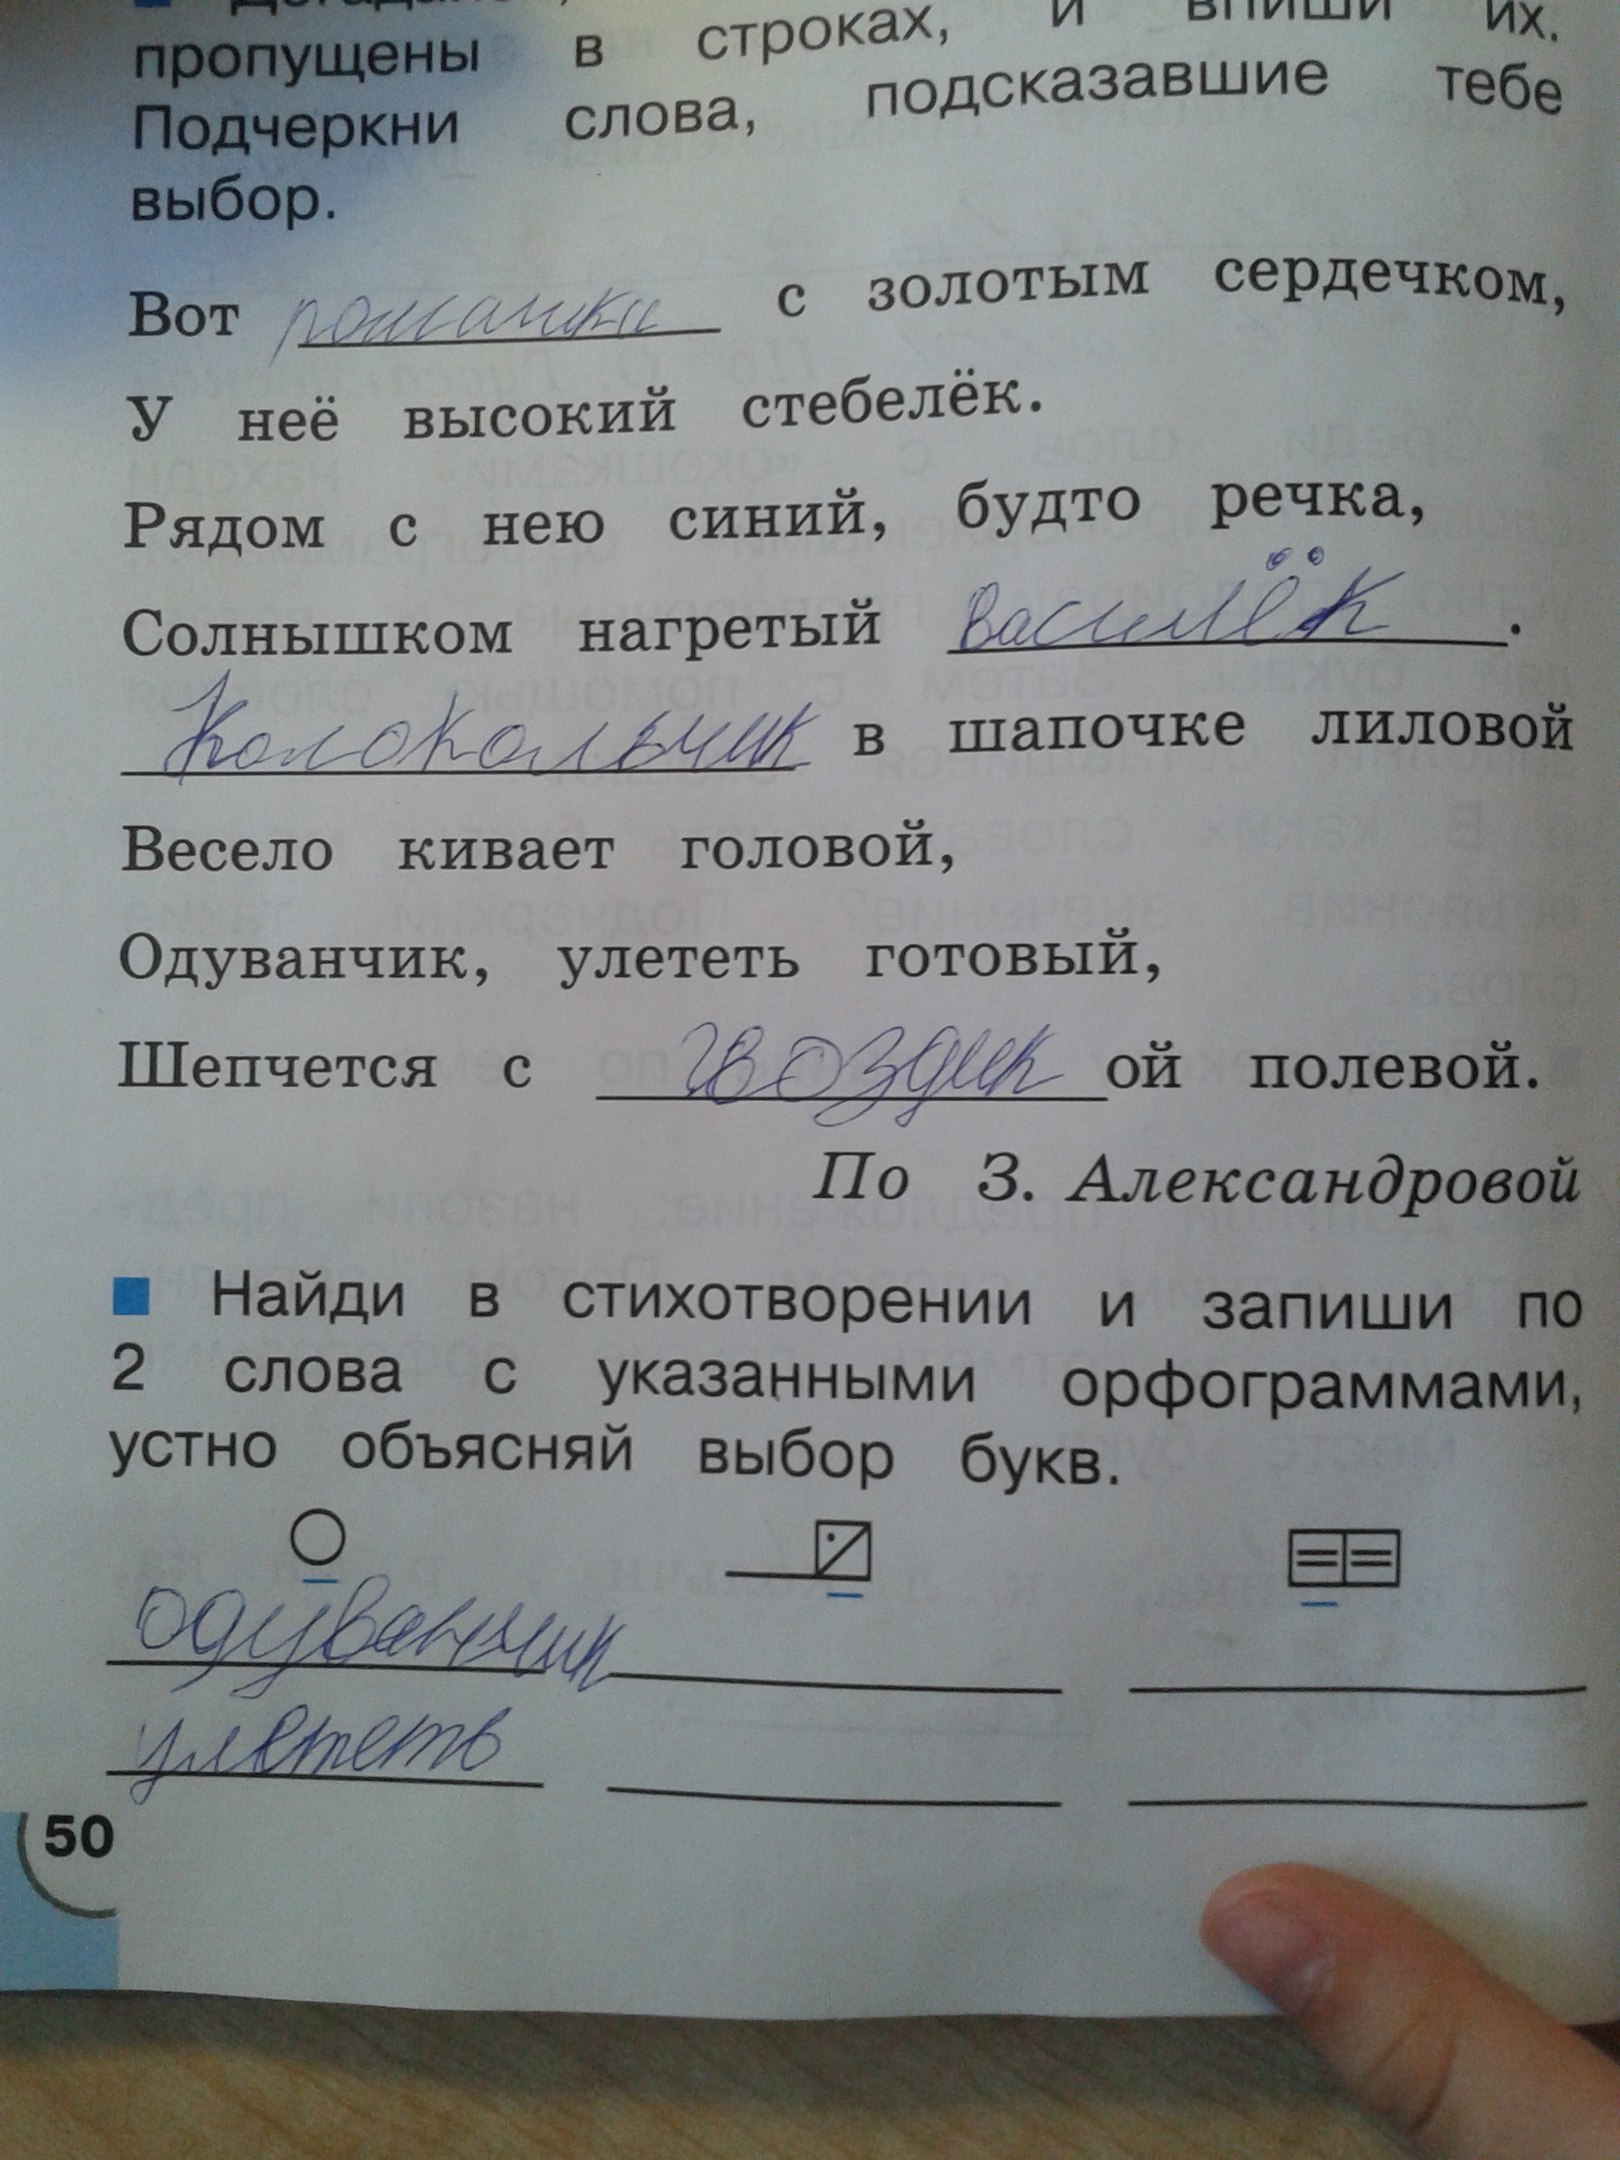 пропущены в строках, и впиши их.
Подчеркни слова, подсказавшие тебе
выбор.
Вот ромашка с золотым сердечком,
У неё высокий стебелёк.
Рядом с нею синий, будто речка,
Солнышком нагретый василёк.
Колокольчик в шапочке лиловой
Весело кивает головой,
Одуванчик, улететь готовый,
Шепчется с гвоздикой полевой.
По З. Александровой
Найди в стихотворении и запиши по
2 слова с указанными орфограммами,
устно объясняй выбор букв.
одуванчик
улететь
50